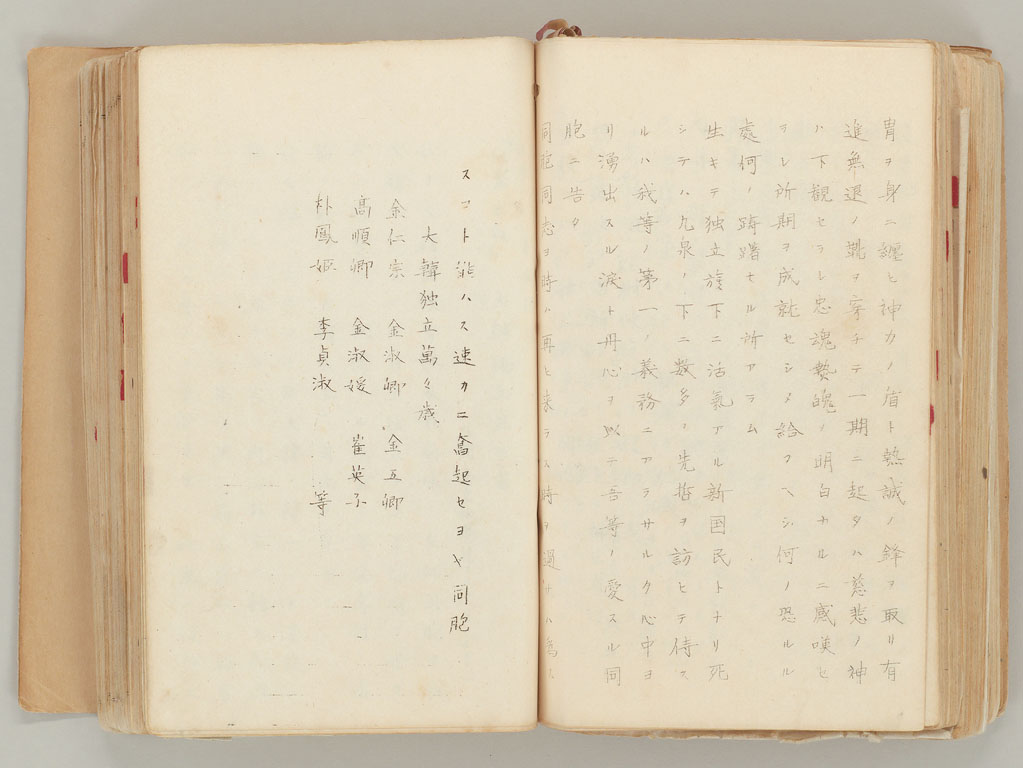 冑ヲ身ニ纏ヒ神力ノ盾ト熱誠ノ鋒ヲ取リ有
進無退ノ氣ヲ穿チテ一期ニ起タハ慈悲ノ神
ハ下觀セラレ忠魂毅魄ノ明白ナルニ感嘆セ
ラレ所期ヲ成就セシメ給フヘシ何ノ恐ルル
處何ノ躊躇セル所アラム
生キテ独立旗下ニ活氣アル新国民トナリ死
シテハ九泉ノ下ニ数多ノ先哲ヲ訪ヒテ侍ス
ルハ我等ノ第一ノ義務ニアラサルク心中ヨ
リ湧出スル涙ト丹心ヲ以ニ吾等ノ愛スル同
胞ニ告ク
同胞同志ヨ時ハ再ヒ来ラス時ヲ過サハ為
スコト能ハス速カニ奮起セヨヤ同胞
大韓独立萬々歳
金仁宗 金淑卿 金互卿
高順卿 金淑媛 崔英子
朴鳳姫 李貞淑 等